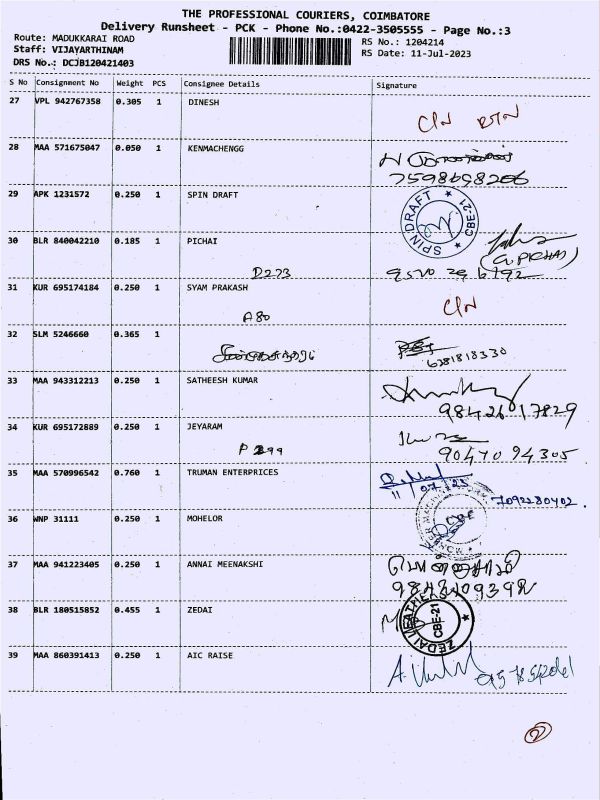 THE PROFESSIONAL COURIERS, COIMBATORE
Delivery Runsheet - PCK - Phone No.:0422-3505555 - Page No.:3
Route: MADUKKARAI ROAD
RS No.: 1204214
Staff: VIJAYARTHINAM
RS Date: 11-Jul-2023
DRS No.: DCJB120421403
S No Consignment No Weight PCS Consignee Details Signature
27 VPL 942767358 0.305 1 DINESH
C/N
28 MAA 571675047 0.050 1 KENMACHENGG
7598698206
29 APK 1231572 0.250 1 SPIN DRAFT
SPIN DRAFT ★ CBE-21 ★
30 BLR 840042210 0.185 1 PICHAI
(G.PICHAI)
D273
31 KUR 695174184 0.250 1 SYAM PRAKASH
C/N
A80
32 SLM 5246660 0.365 1
6281818330
33 MAA 943312213 0.250 1 SATHEESH KUMAR
98426 17829
34 KUR 695172889 0.250 1 JEYARAM
P 299
90470 94305
35 MAA 570996542 0.760 1 TRUMAN ENTERPRICES
11/07/23
7092280402
36 WNP 31111 0.250 1 MOHELOR
37 MAA 941223405 0.250 1 ANNAI MEENAKSHI
38 BLR 180515852 0.455 1 ZEDAI
CBE-21
39 MAA 860391413 0.250 1 AIC RAISE